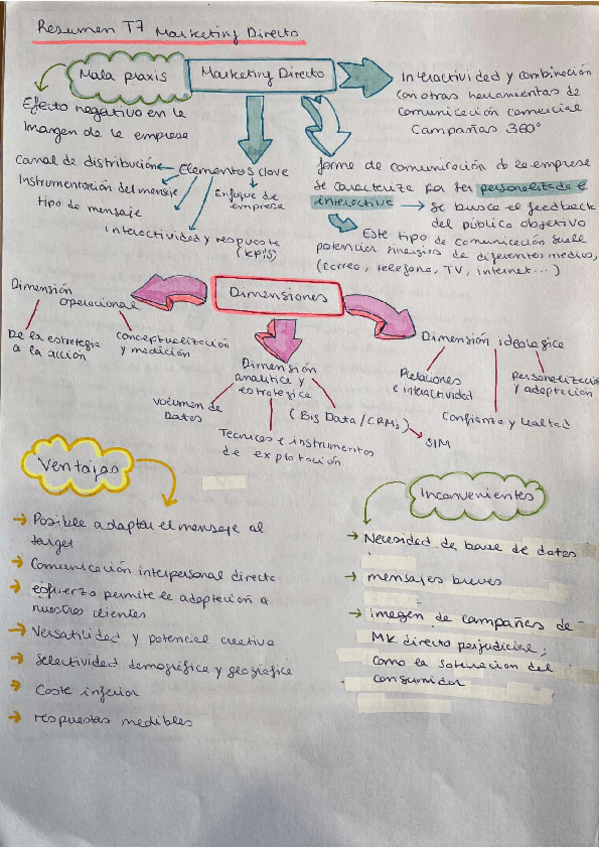 Resumen T7 Marketing Directo
Mala praxis
Marketing Directo
Interactividad y combinación
con otras herramientas de
comunicación comercial
Campañas 360°
Efecto negativo en la
Imagen de la empresa
Canal de distribución
Elementos clave
Instrumentación del mensaje
tipo de mensaje
Enfoque de
empresa
interactividad y respuesta
(KPIs)
forma de comunicación de la empresa
se caracteriza por ser personalizada e
interactiva → se busca el feedback
del público objetivo
Este tipo de comunicación suele
potenciar sinergias de diferentes medios,
(correo, telefono, TV, internet...)
Dimensiones
Dimensión
operacional
De la estrategia
a la acción
conceptualización
y medición
Dimensión
analítica y
estratégica
volumen de
Datos
Tecnicas e instrumentos
de explotación
(Big Data/CRMs)
SIM
Dimensión ideologica
Relaciones
e interactividad
Confianza y lealtad
personalización
y adaptación
Ventajas
→ Posible adaptar el mensaje al
target
→ Comunicación interpersonal directa
→ esfuerzo permite la adaptación a
nuestros clientes
→ Versatilidad y potencial creativo
→ Selectividad demográfica y geográfica
→ Coste inferior
→ respuestas medibles
Inconvenientes
→ Necesidad de base de datos
→ mensajes breves
→ imagen de campañas de
MK directo perjudicial,
como la saturación del
consumidor